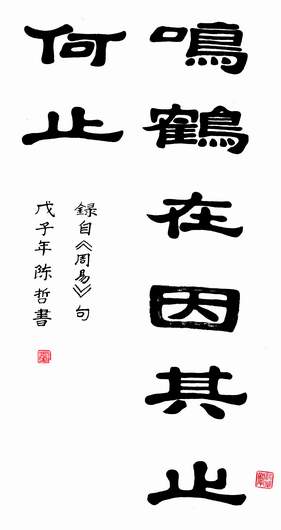 鳴鶴在因其止
何止
錄自《周易》句
戊子年陈哲書